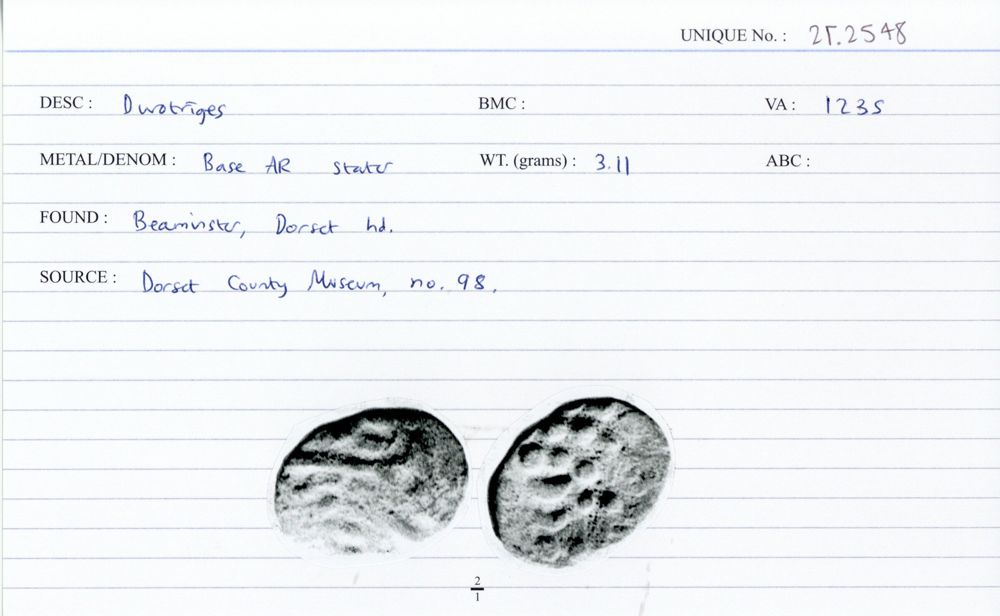 UNIQUE No. : 2T.2548
DESC : Durotriges BMC : VA : 1235
METAL/DENOM : Base AR stater WT. (grams) : 3.11 ABC :
FOUND : Beaminster, Dorset hd.
SOURCE : Dorset County Museum, no. 98.
2
1